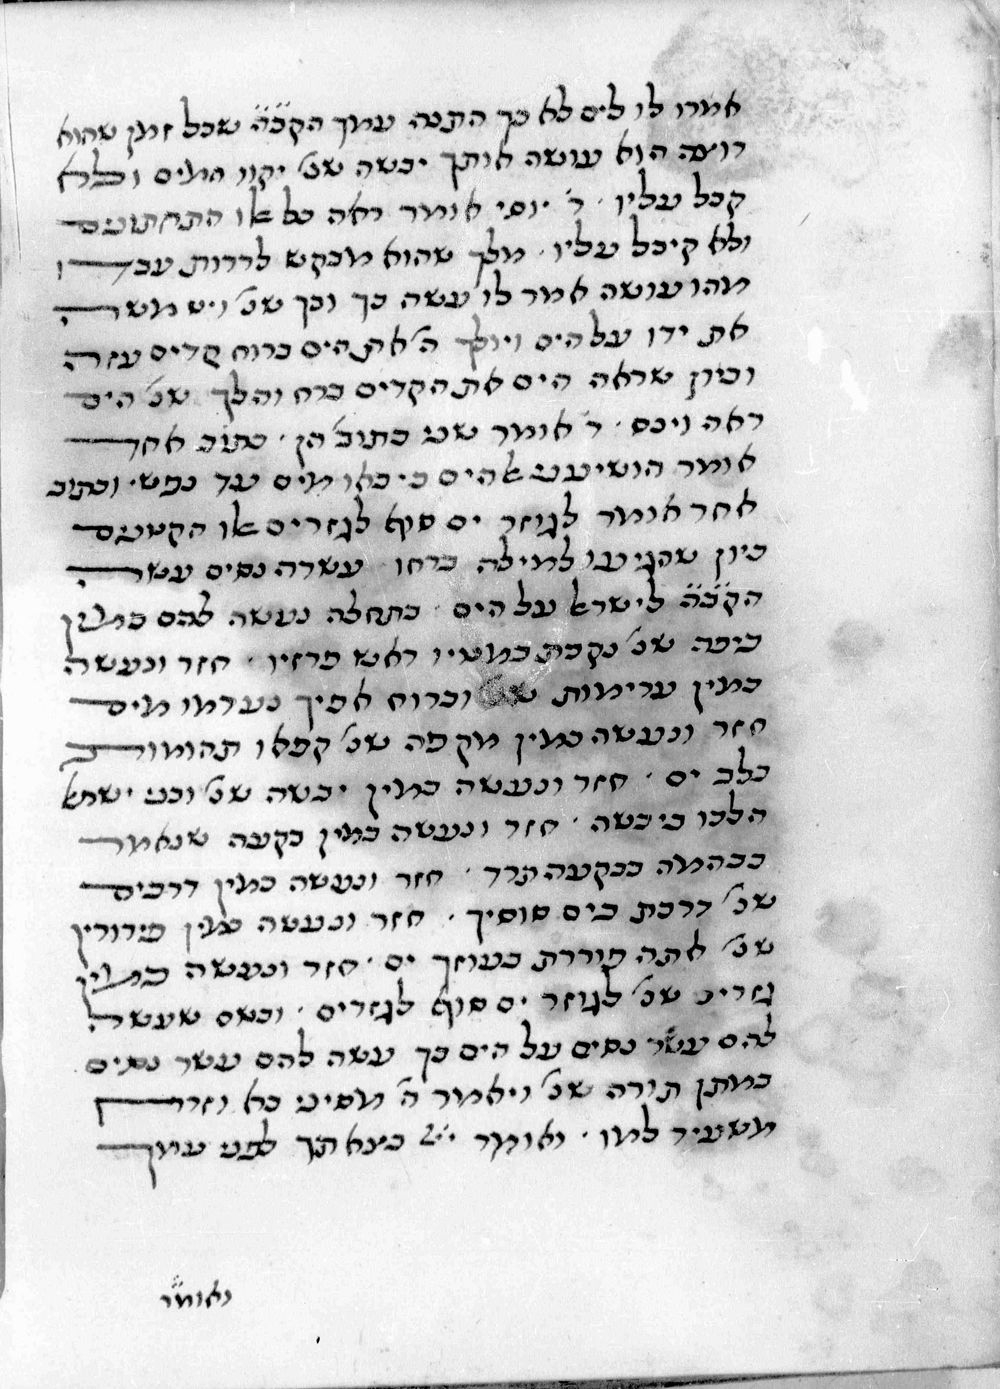 אמרו לו לים לא כך התנה עמך הקב״ה שכל זמן שהוא
רוצה הוא עושה אותך יבשה שנ׳ יקוו המים ולא
קבל עליו ׳ ר׳ יוסי אומר ראה כל אלו התחתונים
ולא קיבל עליו ׳ מלך שהוא מבקש לרדות עבדו
מהו עושה אמר לו עשה כך וכך שנ׳ ויט משה
את ידו על הים ויולך ה׳ את הים ברוח קדים עזה
וכיון שראה הים את הקדים ברח והלך שנ׳ הים
ראה וינס ׳ ר׳ אומר שני כתובי׳ הן ׳ כתוב אחד
אומר הושיעני אלהים כי באו מים עד נפש ׳ וכתוב
אחר אומר לגוזר ים סוף לגזרים אלו הקטנים
כיון שהגיעו למילה ברחו ׳ עשרה נסים עשה
הקב״ה לישראל על הים ׳ בתחלה נעשה להם כמין
כיפה שנ׳ נקבת במטיו ראש פרזיו ׳ חזר ונעשה
כמין ערימות שנ׳ וברוח אפיך נערמו מים
חזר ונעשה כמין מקפה שנ׳ קפאו תהומות
בלב ים ׳ חזר ונעשה כמין יבשה שנ׳ ובני ישראל
הלכו ביבשה ׳ חזר ונעשה כמין בקעה שנאמר
כבהמה בבקעה תרד ׳ חזר ונעשה כמין דרכים
שנ׳ דרכת בים סוסיך ׳ חזר ונעשה כמין פירורין
שנ׳ אתה פוררת בעוזך ים ׳ חזר ונעשה כמין
גזרים שנ׳ לגוזר ים סוף לגזרים ׳ וכשם שעשה
להם עשר נסים על הים כך עשה להם עשר נסים
במתן תורה שנ׳ ויאמר ה׳ מסיני בא וזרח
משעיר למו ׳ ואומר ייי בצאתך לפני עמך
ואומ״ר